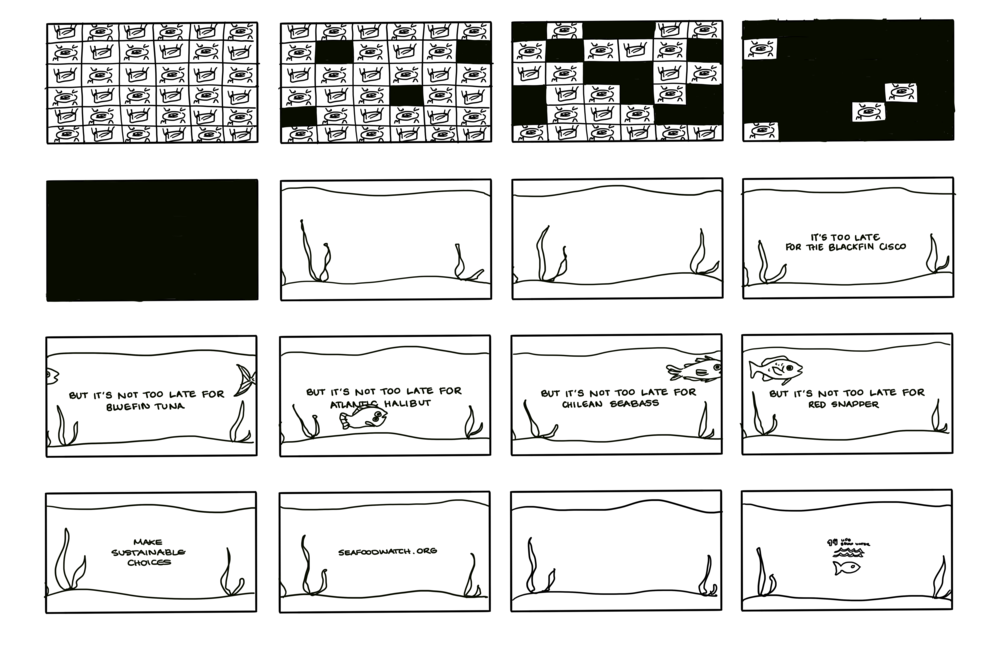 IT'S TOO LATE
FOR THE BLACKFIN CISCO
BUT IT'S NOT TOO LATE FOR
BLUEFIN TUNA
BUT IT'S NOT TOO LATE FOR
ATLANTIC HALIBUT
BUT IT'S NOT TOO LATE FOR
CHILEAN SEABASS
BUT IT'S NOT TOO LATE FOR
RED SNAPPER
MAKE
SUSTAINABLE
CHOICES
SEAFOODWATCH.ORG